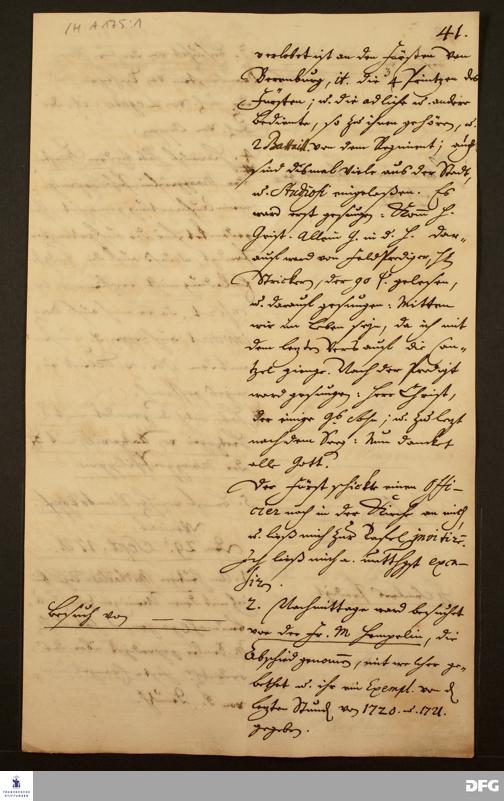 1H A 175:1
41.
verlobet ist an den Fürsten von
Berenburg, it. die 4 Printzen des
Fürsten; u. die adliche u. andere
Bediente, so zu ihnen gehören, u.
2 Bataill. von dem Regiment; auch
sind dismal viele aus der Stadt,
u. Studiosi eingelaßen. Es
ward erst gesungen: Kom H.
Geist. Allein G. in d. H. Dar-
auf ward von Feldprediger, H.
Stricker, der 90 Ps. gelesen,
u. darauf gesungen: Mitten
wir im Leben sind, da ich mit
dem letzten Vers auf die Can-
tzel gienge. Nach der Predigt
ward gesungen: Herr Christ,
der einige Gs. Sohn; u. zuletzt
nach dem Seeg: Nun dancket
alle Gott.
Der Fürst schickte einen Offi-
cier noch in der Kirche an mich,
u. ließ mich zur Tafel invitiren.
Ich ließ mich a. unterthgst excu-
siren.
Besuch von
2. Nachmittage ward besucht
von der Fr. M. Hempelin, die
Abschied genommen, mit welcher ge-
bethet u. ihr ein Exempl. von d
letzten Stund von 1720. u. 1721.
gegeben.
FRANCKESCHE
STIFTUNGEN
DFG